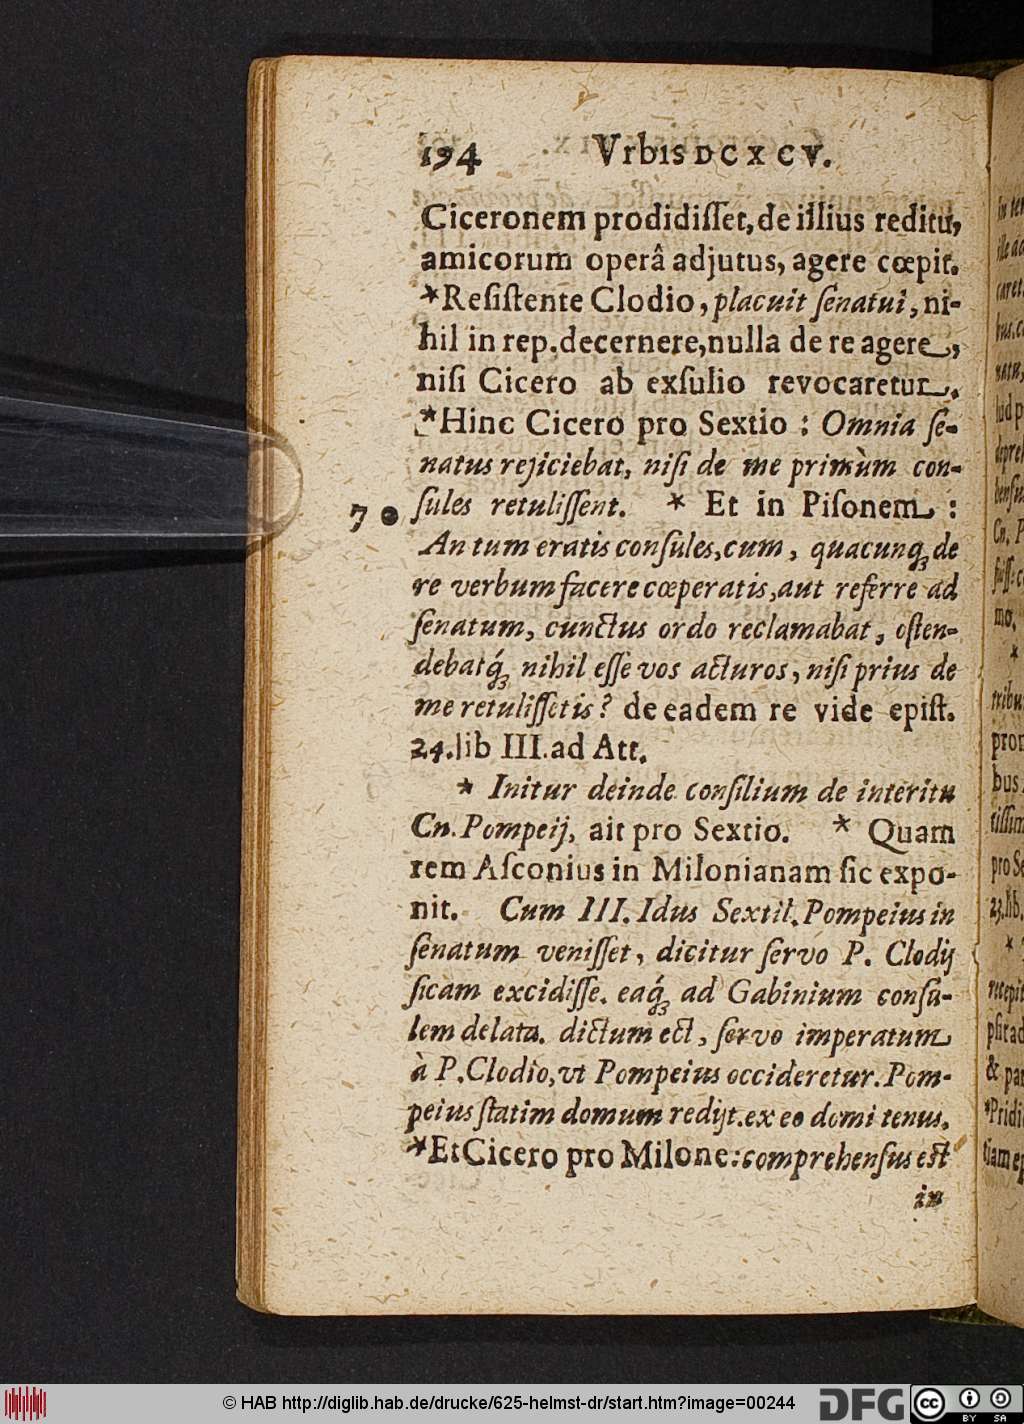 194 VrbIS DCXCV.
Ciceronem prodidiſſet, de illius reditu,
amicorum operâ adjutus, agere cœpit.
*Reſiſtente Clodio, placuit ſenatui, ni-
hil in rep. decernere, nulla de re agere,
niſi Cicero ab exſulio revocaretur.
*Hinc Cicero pro Sextio : Omnia ſe-
natus rejiciebat, niſi de me primùm con-
70 ſules retuliſſent. * Et in Piſonem :
An tum eratis conſules, cum, quacunq́; de
re verbum facere cœperatis, aut referre ad
ſenatum, cunctus ordo reclamabat, oſten-
debatq́; nihil eſſe vos acturos, niſi prius de
me retuliſſetis? de eadem re vide epiſt.
24. lib III. ad Att.
* Initur deinde conſilium de interitu
Cn. Pompeij, ait pro Sextio. * Quam
rem Aſconius in Milonianam ſic expo-
nit. Cum III. Idus Sextil. Pompeius in
ſenatum veniſſet, dicitur ſervo P. Clodij
ſicam excidiſſe. eaq́; ad Gabinium conſu-
lem delata. dictum eſt, ſervo imperatum
à P. Clodio, vt Pompeius occideretur. Pom-
peius ſtatim domum redijt. ex eo domi tenus.
*Et Cicero pro Milone: comprehenſus eſt
in
© HAB http://diglib.hab.de/drucke/625-helmst-dr/start.htm?image=00244
DFG
cc BY SA